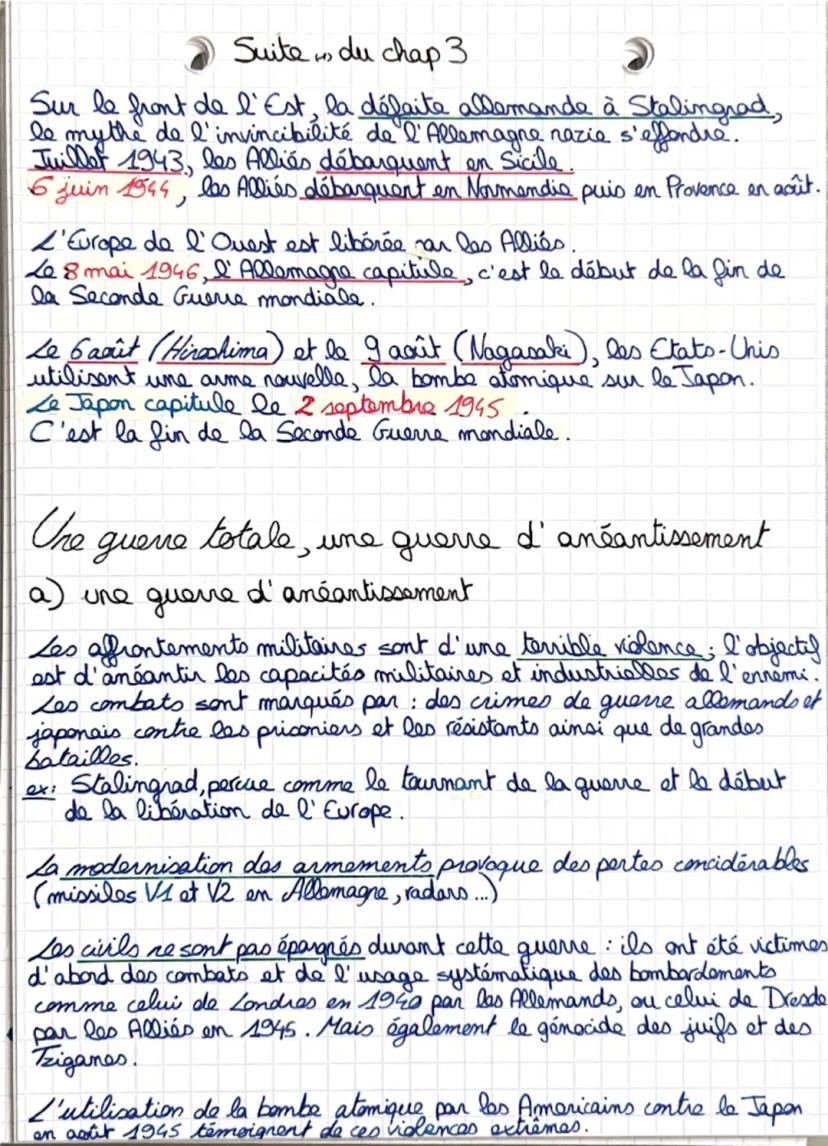 Suite (...) du chap 3
Sur le front de l'Est, la défaite allemande à Stalingrad,
le mythe de l'invincibilité de l'Allemagne nazie s'effondre.
Juillet 1943, les Alliés débarquent en Sicile.
6 juin 1944, les Alliés débarquent en Normandie puis en Provence en août.
L'Europe de l'Ouest est libérée par les Alliés.
Le 8 mai 1946, l'Allemagne capitule, c'est le début de la fin de
la Seconde Guerre mondiale.
Le 6 août (Hiroshima) et le 9 août (Nagasaki), les Etats-Unis
utilisent une arme nouvelle, la bombe atomique sur le Japon.
Le Japon capitule le 2 septembre 1945.
C'est la fin de la Seconde Guerre mondiale.
Une guerre totale, une guerre d'anéantissement
a) une guerre d'anéantissement
Les affrontements militaires sont d'une terrible violence ; l'objectif
est d'anéantir les capacités militaires et industrielles de l'ennemi.
Les combats sont marqués par : des crimes de guerre allemands et
japonais contre les prisoniers et les résistants ainsi que de grandes
batailles.
ex: Stalingrad, percue comme le tournant de la guerre et le début
de la libération de l'Europe.
La modernisation des armements provoque des pertes concidérables
(missiles V1 et V2 en Allemagne, radars...)
Les civils ne sont pas épargnés durant cette guerre : ils ont été victimes
d'abord des combats et de l'usage systématique des bombardements
comme celui de Londres en 1940 par les Allemands, ou celui de Dresde
par les Alliés en 1945. Mais également le génocide des juifs et des
Tziganes.
L'utilisation de la bombe atomique par les Americains contre le Japon
en août 1945 témoignent de ces violences extrêmes.